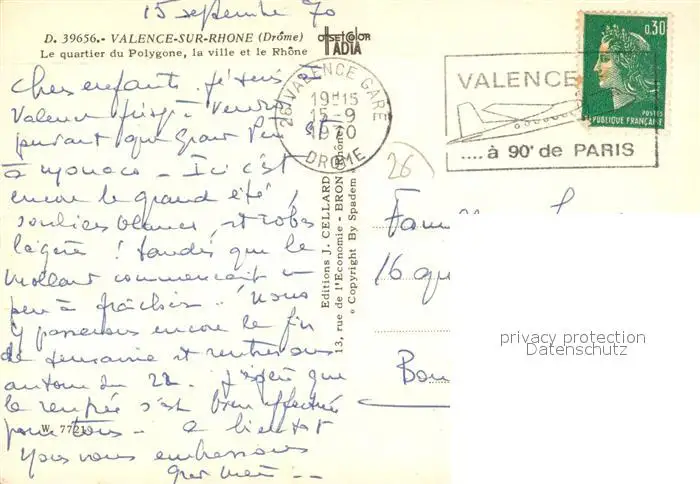 15 septembre 70
D. 39656.- VALENCE-SUR-RHONE (Drôme)
Le quartier du Polygone, la ville et le Rhône
OFFSETCOLOR
IADIA
Chers enfants. Je suis à
Valence jusqu'à
pendant que Grand Père est
à Monaco - Ici c'est
encore le grand été,
souliers blancs, et robes
légères ! tandis que le
commençait un
peu à fraîchir. Nous
y passerons encore la fin
de semaine et rentrerons
autour du 22. J'espère que
la rentrée s'est bien effectuée
pour tous - A bientôt
W. 77210
vous embrassons
26 VALENCE GARE
19H15
15-9
1970
DROME
VALENCE
....à 90' de PARIS
0,30
POSTES
REPUBLIQUE FRANÇAISE
26
Editions J. CELLARD
13, rue de l'Economie - BRON (Rhône)
Copyright By Spadem
16
privacy protection
Datenschutz